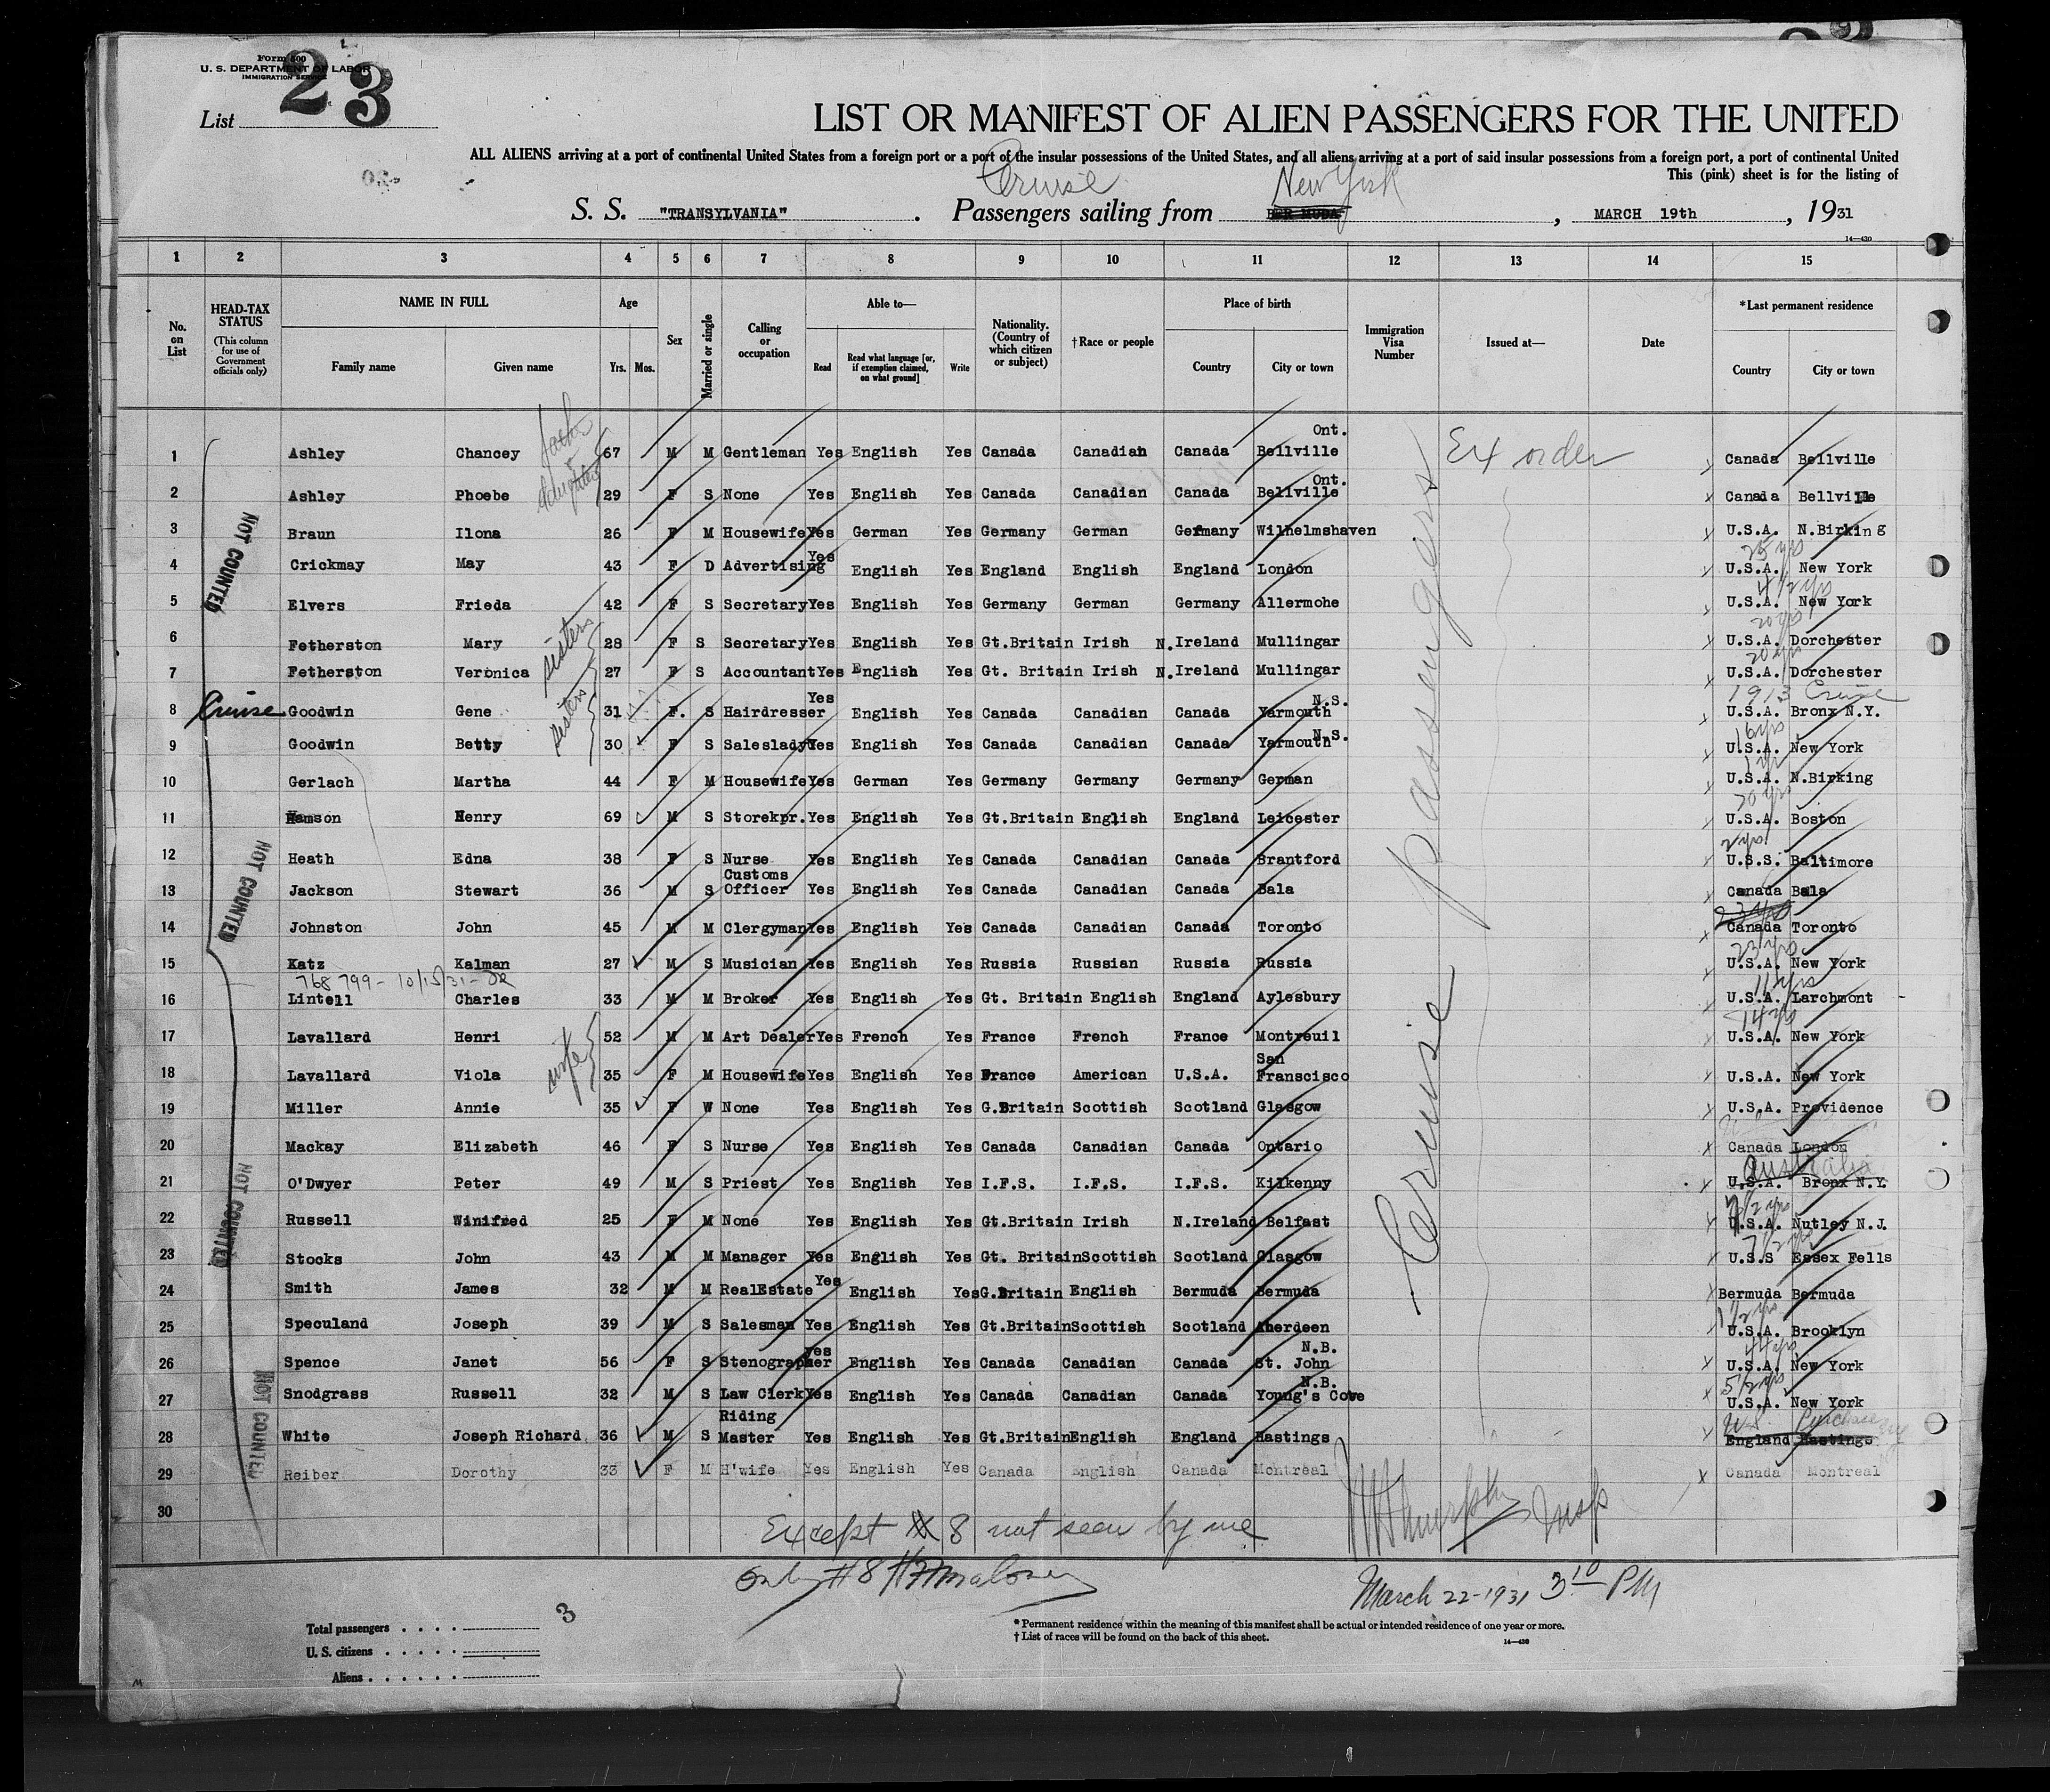 Form 500
U. S. DEPARTMENT OF LABOR
IMMIGRATION SERVICE
23
List
LIST OR MANIFEST OF ALIEN PASSENGERS FOR THE UNITED
ALL ALIENS arriving at a port of continental United States from a foreign port or a port of the insular possessions of the United States, and all aliens arriving at a port of said insular possessions from a foreign port, a port of continental United
This (pink) sheet is for the listing of
Cruise New York
S. S. "TRANSYLVANIA" . Passengers sailing from BERMUDA , MARCH 19th , 1931
14—430
1 2 3 4 5 6 7 8 9 10 11 12 13 14 15
No. on List
HEAD-TAX STATUS
(This column for use of Government officials only)
NAME IN FULL
Family name Given name
Age
Yrs. Mos.
Sex
Married or single
Calling or occupation
Able to—
Read
Read what language [or, if exemption claimed, on what ground]
Write
Nationality. (Country of which citizen or subject)
†Race or people
Place of birth
Country City or town
Immigration Visa Number
Issued at—
Date
*Last permanent residence
Country City or town
father & daughter
Ex order
Cruise passengers
NOT COUNTED
NOT COUNTED
NOT COUNTED
NOT COUNTED
1 Ashley Chancey 67 M M Gentleman Yes English Yes Canada Canadian Canada Bellville Ont. Canada Bellville
2 Ashley Phoebe 29 F S None Yes English Yes Canada Canadian Canada Bellville Ont. Canada Bellville
3 Braun Ilona 26 F M Housewife Yes German Yes Germany German Germany Wilhelmshaven U.S.A. N.Birking
25 yrs
4 Crickmay May 43 F D Advertising Yes English Yes England English England London U.S.A. New York
4 1/2 yrs
5 Elvers Frieda 42 F S Secretary Yes English Yes Germany German Germany Allermohe U.S.A. New York
sisters
20 yrs
6 Fetherston Mary 28 F S Secretary Yes English Yes Gt.Britain Irish N.Ireland Mullingar U.S.A. Dorchester
20 yrs
7 Fetherston Veronica 27 F S Accountant Yes English Yes Gt. Britain Irish N.Ireland Mullingar U.S.A. Dorchester
sisters
1913 Cruise
8 Cruise Goodwin Gene 31 F. S Hairdresser Yes English Yes Canada Canadian Canada Yarmouth N.S. U.S.A. Bronx N.Y.
16 yrs
9 Goodwin Betty 30 F S Saleslady Yes English Yes Canada Canadian Canada Yarmouth N.S. U.S.A. New York
10 Gerlach Martha 44 F M Housewife Yes German Yes Germany Germany Germany German U.S.A. N.Birking
11 Hamson Henry 69 M S Storekpr. Yes English Yes Gt.Britain English England Leicester U.S.A. Boston
2 yrs
12 Heath Edna 38 F S Nurse Yes English Yes Canada Canadian Canada Brantford U.S.S. Baltimore
13 Jackson Stewart 36 M S Customs Officer Yes English Yes Canada Canadian Canada Bala Canada Bala
23 yrs
14 Johnston John 45 M M Clergyman Yes English Yes Canada Canadian Canada Toronto Canada Toronto
23 yrs
15 Katz Kalman 27 M S Musician Yes English Yes Russia Russian Russia Russia U.S.A. New York
768 799 - 10/15/31 -
16 Lintell Charles 33 M M Broker Yes English Yes Gt. Britain English England Aylesbury U.S.A. Larchmont
14 yrs
17 Lavallard Henri 52 M M Art Dealer Yes French Yes France French France Montreuil U.S.A. New York
wife
18 Lavallard Viola 35 F M Housewife Yes English Yes France American U.S.A. San Franscisco U.S.A. New York
19 Miller Annie 35 F W None Yes English Yes G.Britain Scottish Scotland Glasgow U.S.A. Providence
20 Mackay Elizabeth 46 F S Nurse Yes English Yes Canada Canadian Canada Ontario Canada London
Australia
21 O'Dwyer Peter 49 M S Priest Yes English Yes I.F.S. I.F.S. I.F.S. Kilkenny U.S.A. Bronx N.Y.
22 Russell Winifred 25 F M None Yes English Yes Gt.Britain Irish N.Ireland Belfast U.S.A. Nutley N.J.
7 1/2 yrs
23 Stocks John 43 M M Manager Yes English Yes Gt. Britain Scottish Scotland Glasgow U.S.S Essex Fells
24 Smith James 32 M M RealEstate Yes English Yes G.Britain English Bermuda Bermuda Bermuda Bermuda
1 1/2 yrs
25 Speculand Joseph 39 M S Salesman Yes English Yes Gt.Britain Scottish Scotland Aberdeen U.S.A. Brooklyn
44 yrs
26 Spence Janet 56 F S Stenographer Yes English Yes Canada Canadian Canada St. John N.B. U.S.A. New York
5 1/2 yrs
27 Snodgrass Russell 32 M S Law Clerk Yes English Yes Canada Canadian Canada Young's Cove N.B. U.S.A. New York
U.S. Purchase
28 White Joseph Richard 36 M S Riding Master Yes English Yes Gt.Britain English England Hastings England Hastings
29 Reiber Dorothy 33 F M H'wife Yes English Yes Canada English Canada Montreal Canada Montreal
30
Except # 8 not seen by me
Murphy Insp
only #8 Maloney
March 22-1931 3 10 PM
3
Total passengers
U. S. citizens
Aliens
* Permanent residence within the meaning of this manifest shall be actual or intended residence of one year or more.
† List of races will be found on the back of this sheet.
14—430